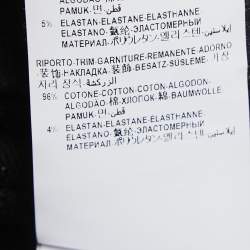 ALGODÃO
PAMUK-면-قطن
5% ELASTAN-ELASTANE-ELASTHANNE
ELASTANO-氨纶-ЭЛАСТОМЕРНЫЙ
МАТЕРИАЛ-ポリウレタン-엘라스텐-إيلاستين
RIPORTO-TRIM-GARNITURE-REMANENTE-ADORNO
装饰-НАКЛАДКА-装飾-BESATZ-SÜSLEME-
자리 장식-الزركشة
96% COTONE-COTTON-COTON-ALGODON-
ALGODAO-棉-ХЛОПОК-棉-BAUMWOLLE
PAMUK-면-قطن
4% ELASTAN-ELASTANE-ELASTHANNE
ELASTANO-氨纶-ЭЛАСТОМЕРНЫЙ
МАТЕРИАЛ-ポリウレタン-엘라스텐-إيلاستين